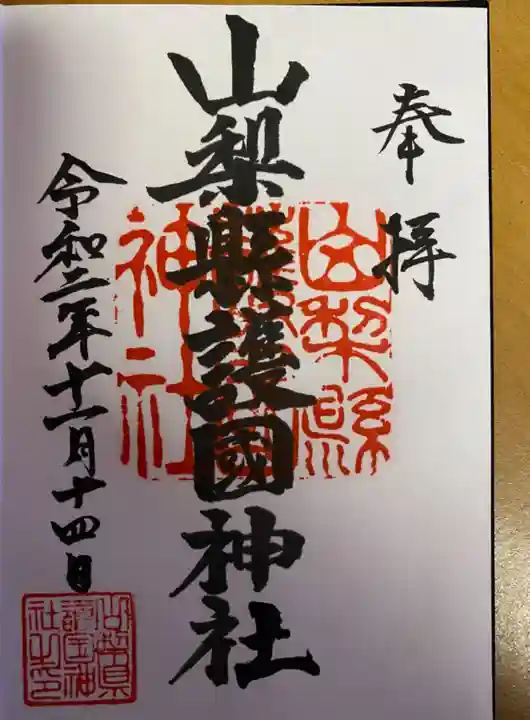 奉拝
山梨縣護國神社
令和二年十一月十四日
山梨縣護國神社
山梨県護国神社之印